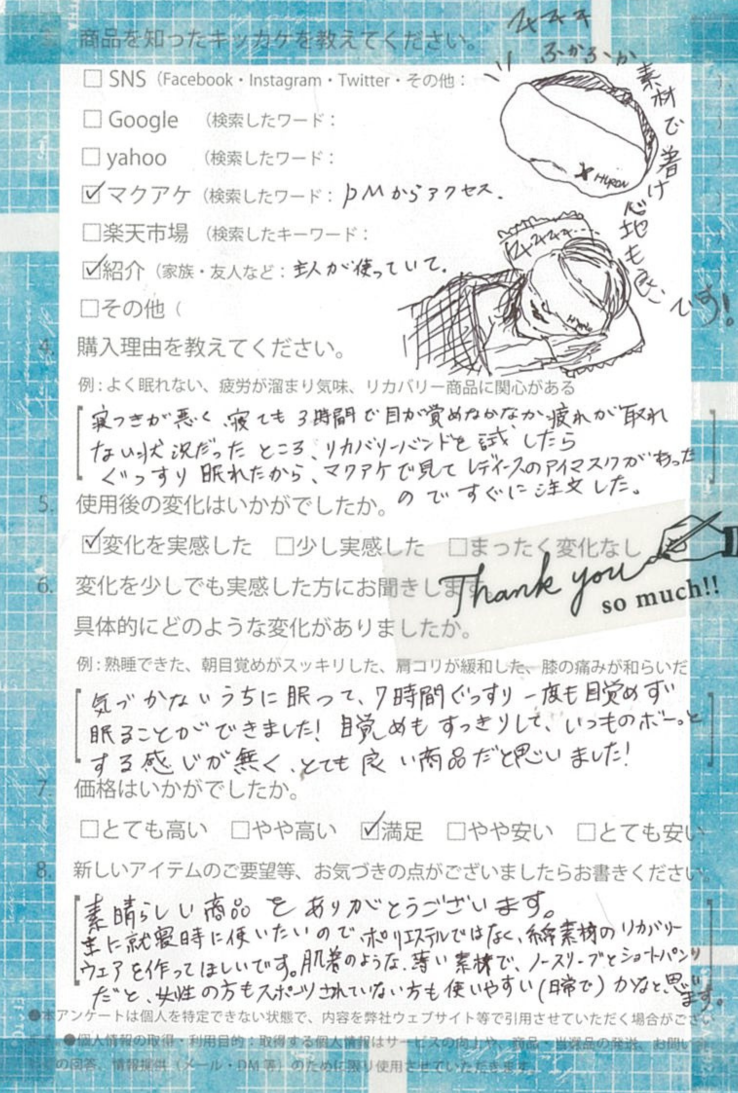 3. 商品を知ったキッカケを教えてください。
ふかふーか
素材で着け心地も良いです!
□ SNS（Facebook・Instagram・Twitter・その他：
□ Google （検索したワード：
□ yahoo （検索したワード：
☑ マクアケ（検索したワード：DMからアクセス.
□楽天市場（検索したキーワード：
☑紹介（家族・友人など：主人が使っていて.
□その他（
4. 購入理由を教えてください。
例：よく眠れない、疲労が溜まり気味、リカバリー商品に関心がある
寝つきが悪く、寝ても3時間で目が覚めなかなか疲れが取れ
ない状況だったところ、リカバリーバンドを試したら
ぐっすり眠れたから、マクアケで見てレディースのアイマスクがあった
のですぐに注文した。
5. 使用後の変化はいかがでしたか。
☑変化を実感した □少し実感した □まったく変化なし
Thank you
so much!!
6. 変化を少しでも実感した方にお聞きします。
具体的にどのような変化がありましたか。
例：熟睡できた、朝目覚めがスッキリした、肩コリが緩和した、膝の痛みが和らいだ
気づかないうちに眠って、7時間ぐっすり一度も目覚めず
眠ることができました! 目覚めもすっきりして、いつものボーっと
する感じが無く、とても良い商品だと思いました!
7. 価格はいかがでしたか。
□とても高い □やや高い ☑満足 □やや安い □とても安い
8. 新しいアイテムのご要望等、お気づきの点がございましたらお書きください。
素晴らしい商品をありがとうございます。
主に就寝時に使いたいので、ポリエステルではなく、綿素材のリカバリー
ウェアを作ってほしいです。肌着のような、薄い素材で、ノースリーブとショートパンツ
だと、女性の方もスポーツされていない方も使いやすい(日常で)かなと、思います。
●本アンケートは個人を特定できない状態で、内容を弊社ウェブサイト等で引用させていただく場合がござい
●個人情報の取得・利用目的：取得する個人情報はサービスの向上や、商品・当選品の発送、お問い
の回答、情報提供（メール・DM等）のために限り使用させていただきます。